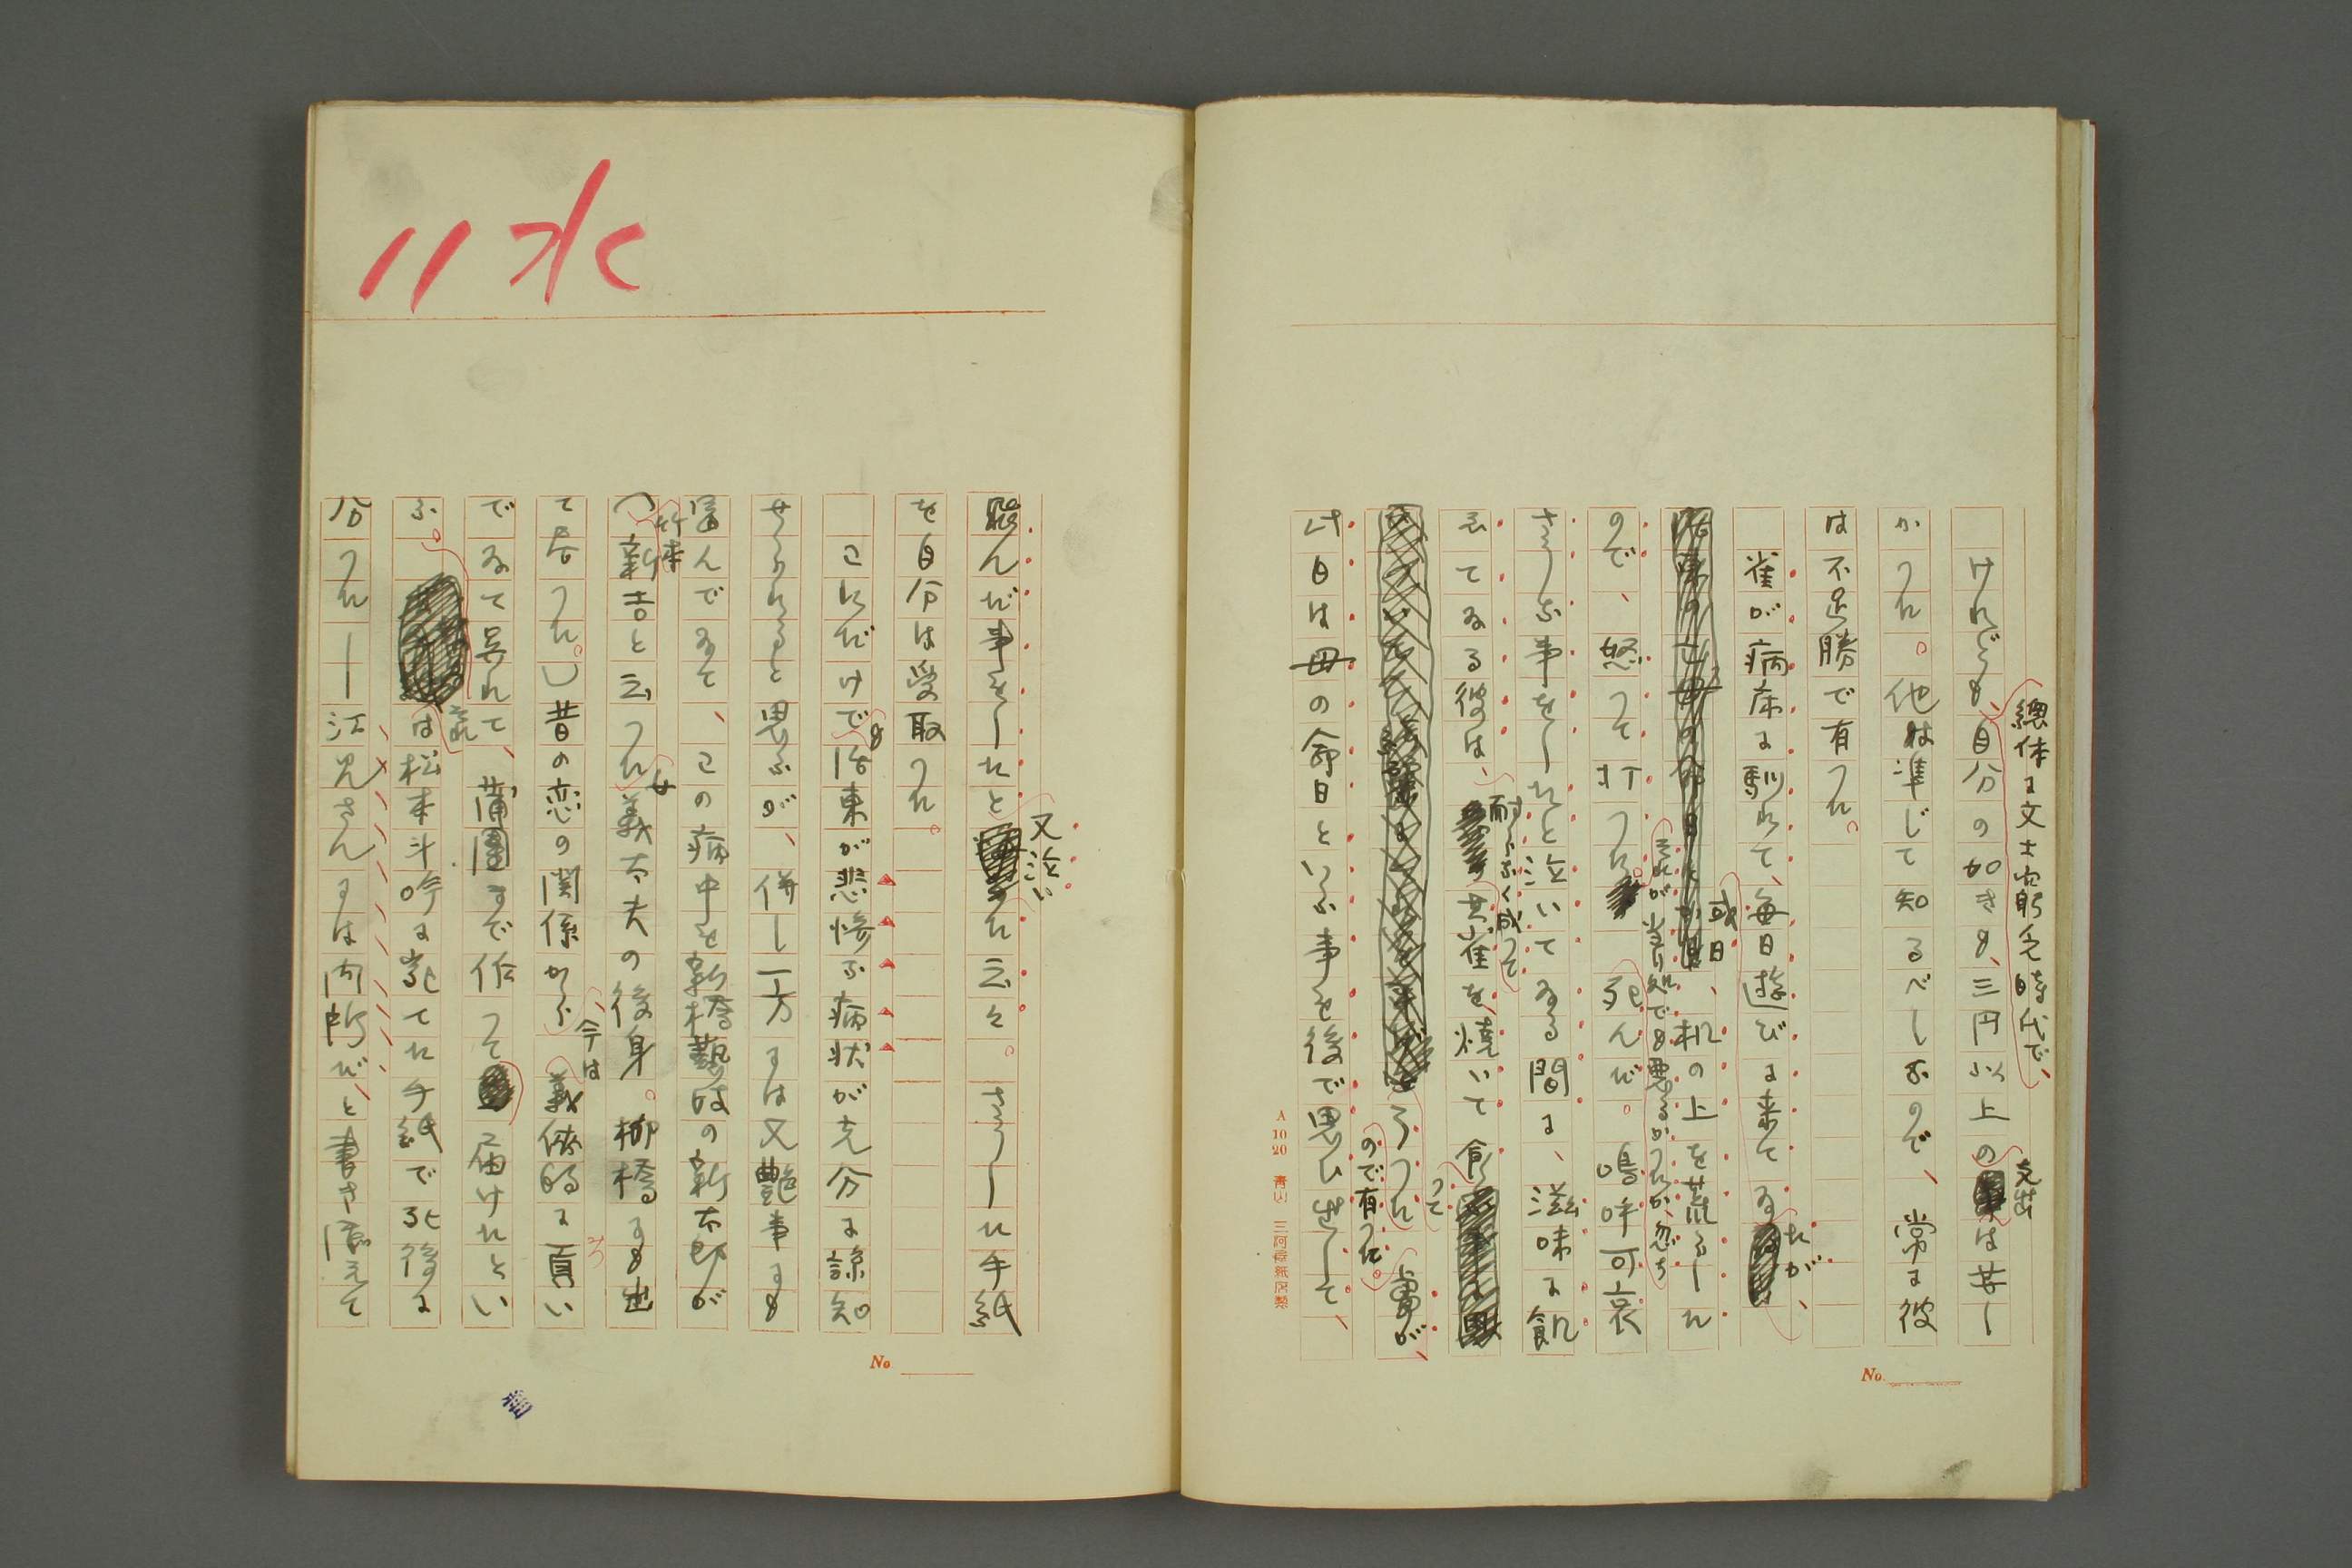 総体に文士窮乏時代で、
けれども、自分の如きも、三円以上の支出は苦し
かつた。他は準じて知るべしなので、常に彼
は不足勝で有つた。
雀が病床に馴れて、毎日遊びに来てゐたが、
或日、机の上を荒らした
ので、怒つて打つた。
それが当り処でも悪るかつたか、忽ち
死んだ。嗚呼可哀
さうな事をしたと泣いてゐる間に、滋味に飢
ゑてゐる彼は、耐らなく成つて
其雀を焼いて食つて
しまつたので有つた。
此日は母の命日といふ事を後で思ひ出して、
飛んだ事をしたと又泣いた云々。さうした手紙
を自分は受取つた。
これだけでも活東が悲惨な病状が充分に諒知
せられると思ふが、併し一方には又艶事にも
富んでゐて、この病中を新橋藝妓の新太郎が
(竹本新吉と云つた女義太夫の後身。柳橋にも出
て居つた。)昔の恋の関係から、今は義侠的に貢い
でゐて呉れて、蒲団まで作つて届けたとい
ふ。それは松本斗吟に宛てた手紙で死後に
分つた――江見さんには内所だ、と書き添えて
11水
No.
No.
A 10 20 青山 三河屋紙店製